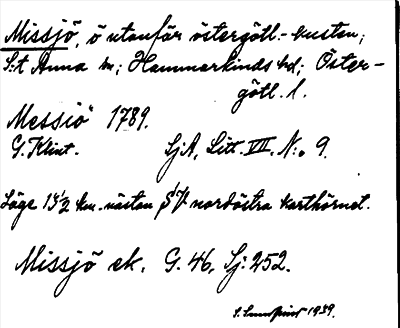 Missjö, ö utanför östergötl.-kusten;
S:t Anna sn; Hammarkinds hd; Öster-
götl. l.
Messiö 1789.
G. Klint. SjA, Litt. VII. N:o 9.
Läge 1½ km. nästan SV nordöstra karthörnet.
Missjö ek. G. 46, Sj: 252.
S. Sundqvist 1939.